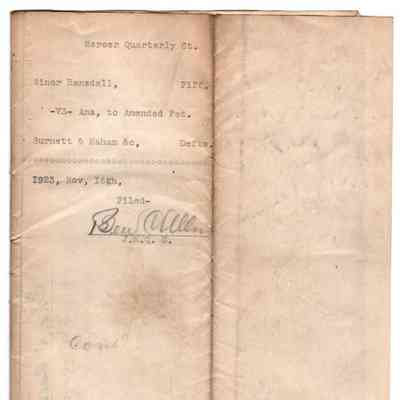 Mercer Quarterly Ct.
Minor Ransdall, Plff,
-VS- Ans, to Amended Pet.
Burnett & Maham &c, Defts.
1923, Nov, 16th,
Filed-
Ben C Allen